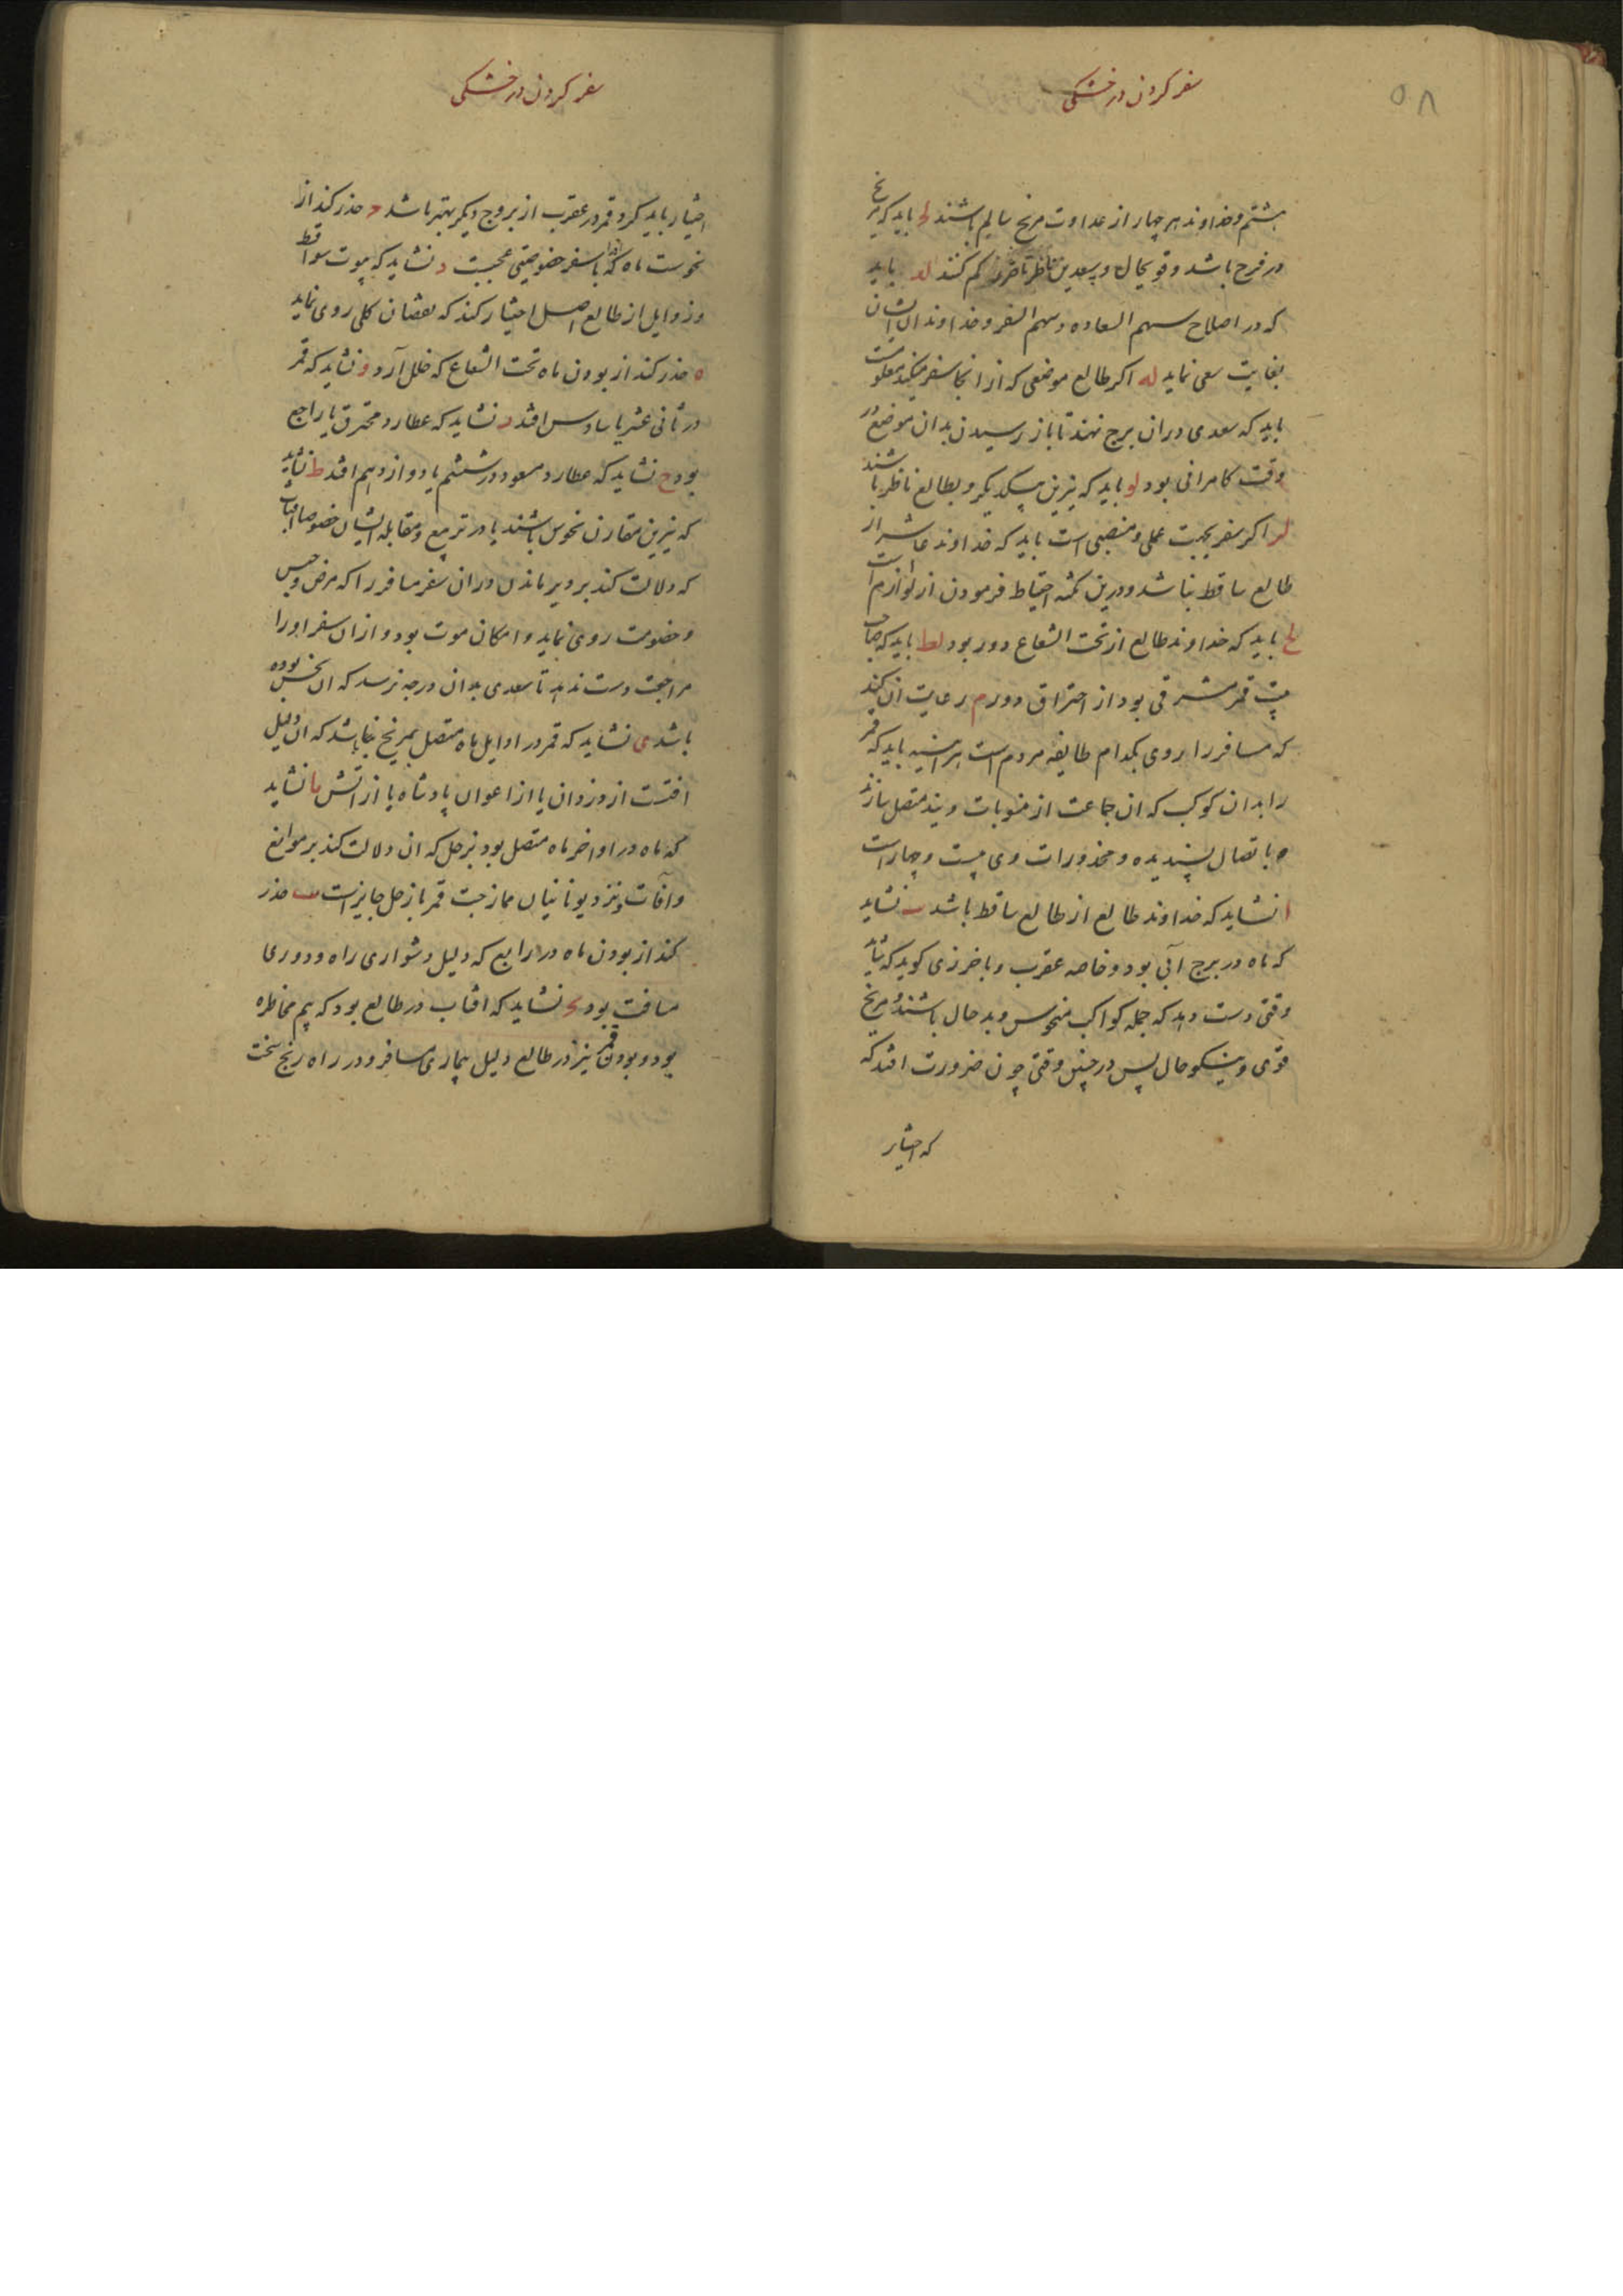 ۵۸
سفر کردن در خشکی
هشتم و خداوند هر چهار از عداوت مریخ سالم باشند لح باید که مریخ
در فرح باشد و قویحال و بسعدین ناظر تا ضرر کم کند لد باید
که در اصلاح سهم السعاده و سهم السفر و خداوندان ایشان
بغایت سعی نماید له اکر طالع موضعی که از انجا سفر میکند معلومست
باید که سعدی در ان برج نهند تا باز رسیدن بدان موضع در
وقت کامرانی بود لو باید که نیرین بیکدیکر و بطالع ناظر باشند
لر اکر سفر بجهت عملی و منصبی است باید که خداوند عاشر از
طالع ساقط نباشد و درین نکته احتیاط فرمودن از لوازم است
لح باید که خداوند طالع از تحت الشعاع دور بود لط باید که صاحب
بیت قمر مشرقی بود از احتراق دور م رعایت ان کند
که مسافر را روی بکدام طایفه مردم است هر اینه باید که قمر
را بدان کوکب که ان جماعت از منسوبات ویند متصل سازند
باتصال پسندیده و محذورات وی بیست و چهار است
ا نشاید که خداوند طالع از طالع ساقط باشد ب نشاید
که ماه در برج آبی بود و خاصه عقرب و باخرزی کوید که شاید
وقتی دست دهد که جمله کواکب منحوس و بد حال باشند و مریخ
قوی و نیکو حال پس در چنین وقتی چون ضرورت افتد که
که اختیار
سفر کردن در خشکی
اختیار باید کرد قمر در عقرب از بروج دیکر بهتر باشد ح حذر کند از
نحوست ماه که او را با سفر خصوصیتی عجبست د نشاید که بیوت سواقط
و زوایل از طالع اصل اختیار کند که نقصان کلی روی نماید
ه حذر کند از بودن ماه تحت الشعاع که خلل آرد و نشاید که قمر
در ثانی عشر یا سادس افتد ر نشاید که عطارد محترق یا راجع
بود ح نشاید که عطارد مسعود در ششم یا دوازدهم افتد ط نشاید
که نیرین مقارن نحوس باشند یا در تربیع و مقابله ایشان خصوصا افتاب
که دلالت کند بر دیر ماندن در ان سفر مسافر را که مرض و حبس
و خصومت روی نماید و امکان موت بود و از ان سفر او را
مراجعت دست ندهد تا سعدی بدان درجه نرسد که ان نحس بوده
باشد ی نشاید که قمر در اوایل ماه متصل بمریخ باشد که ان دلیل
افتست از دزدان یا از اعوان پادشاه یا از اتش یا نشاید
که ماه در اواخر ماه متصل بود بزحل که ان دلالت کند بر موانع
و آفات و نزد یونانیان ممازجت قمر با زحل جایز است یب حذر
کند از بودن ماه در رابع که دلیل دشواری راه و دوری
مسافت بود یح نشاید که افتاب در طالع بود که بیم مخاطره
بود و بودن قمر نیز در طالع دلیل بیماری مسافر و در راه رنج سخت